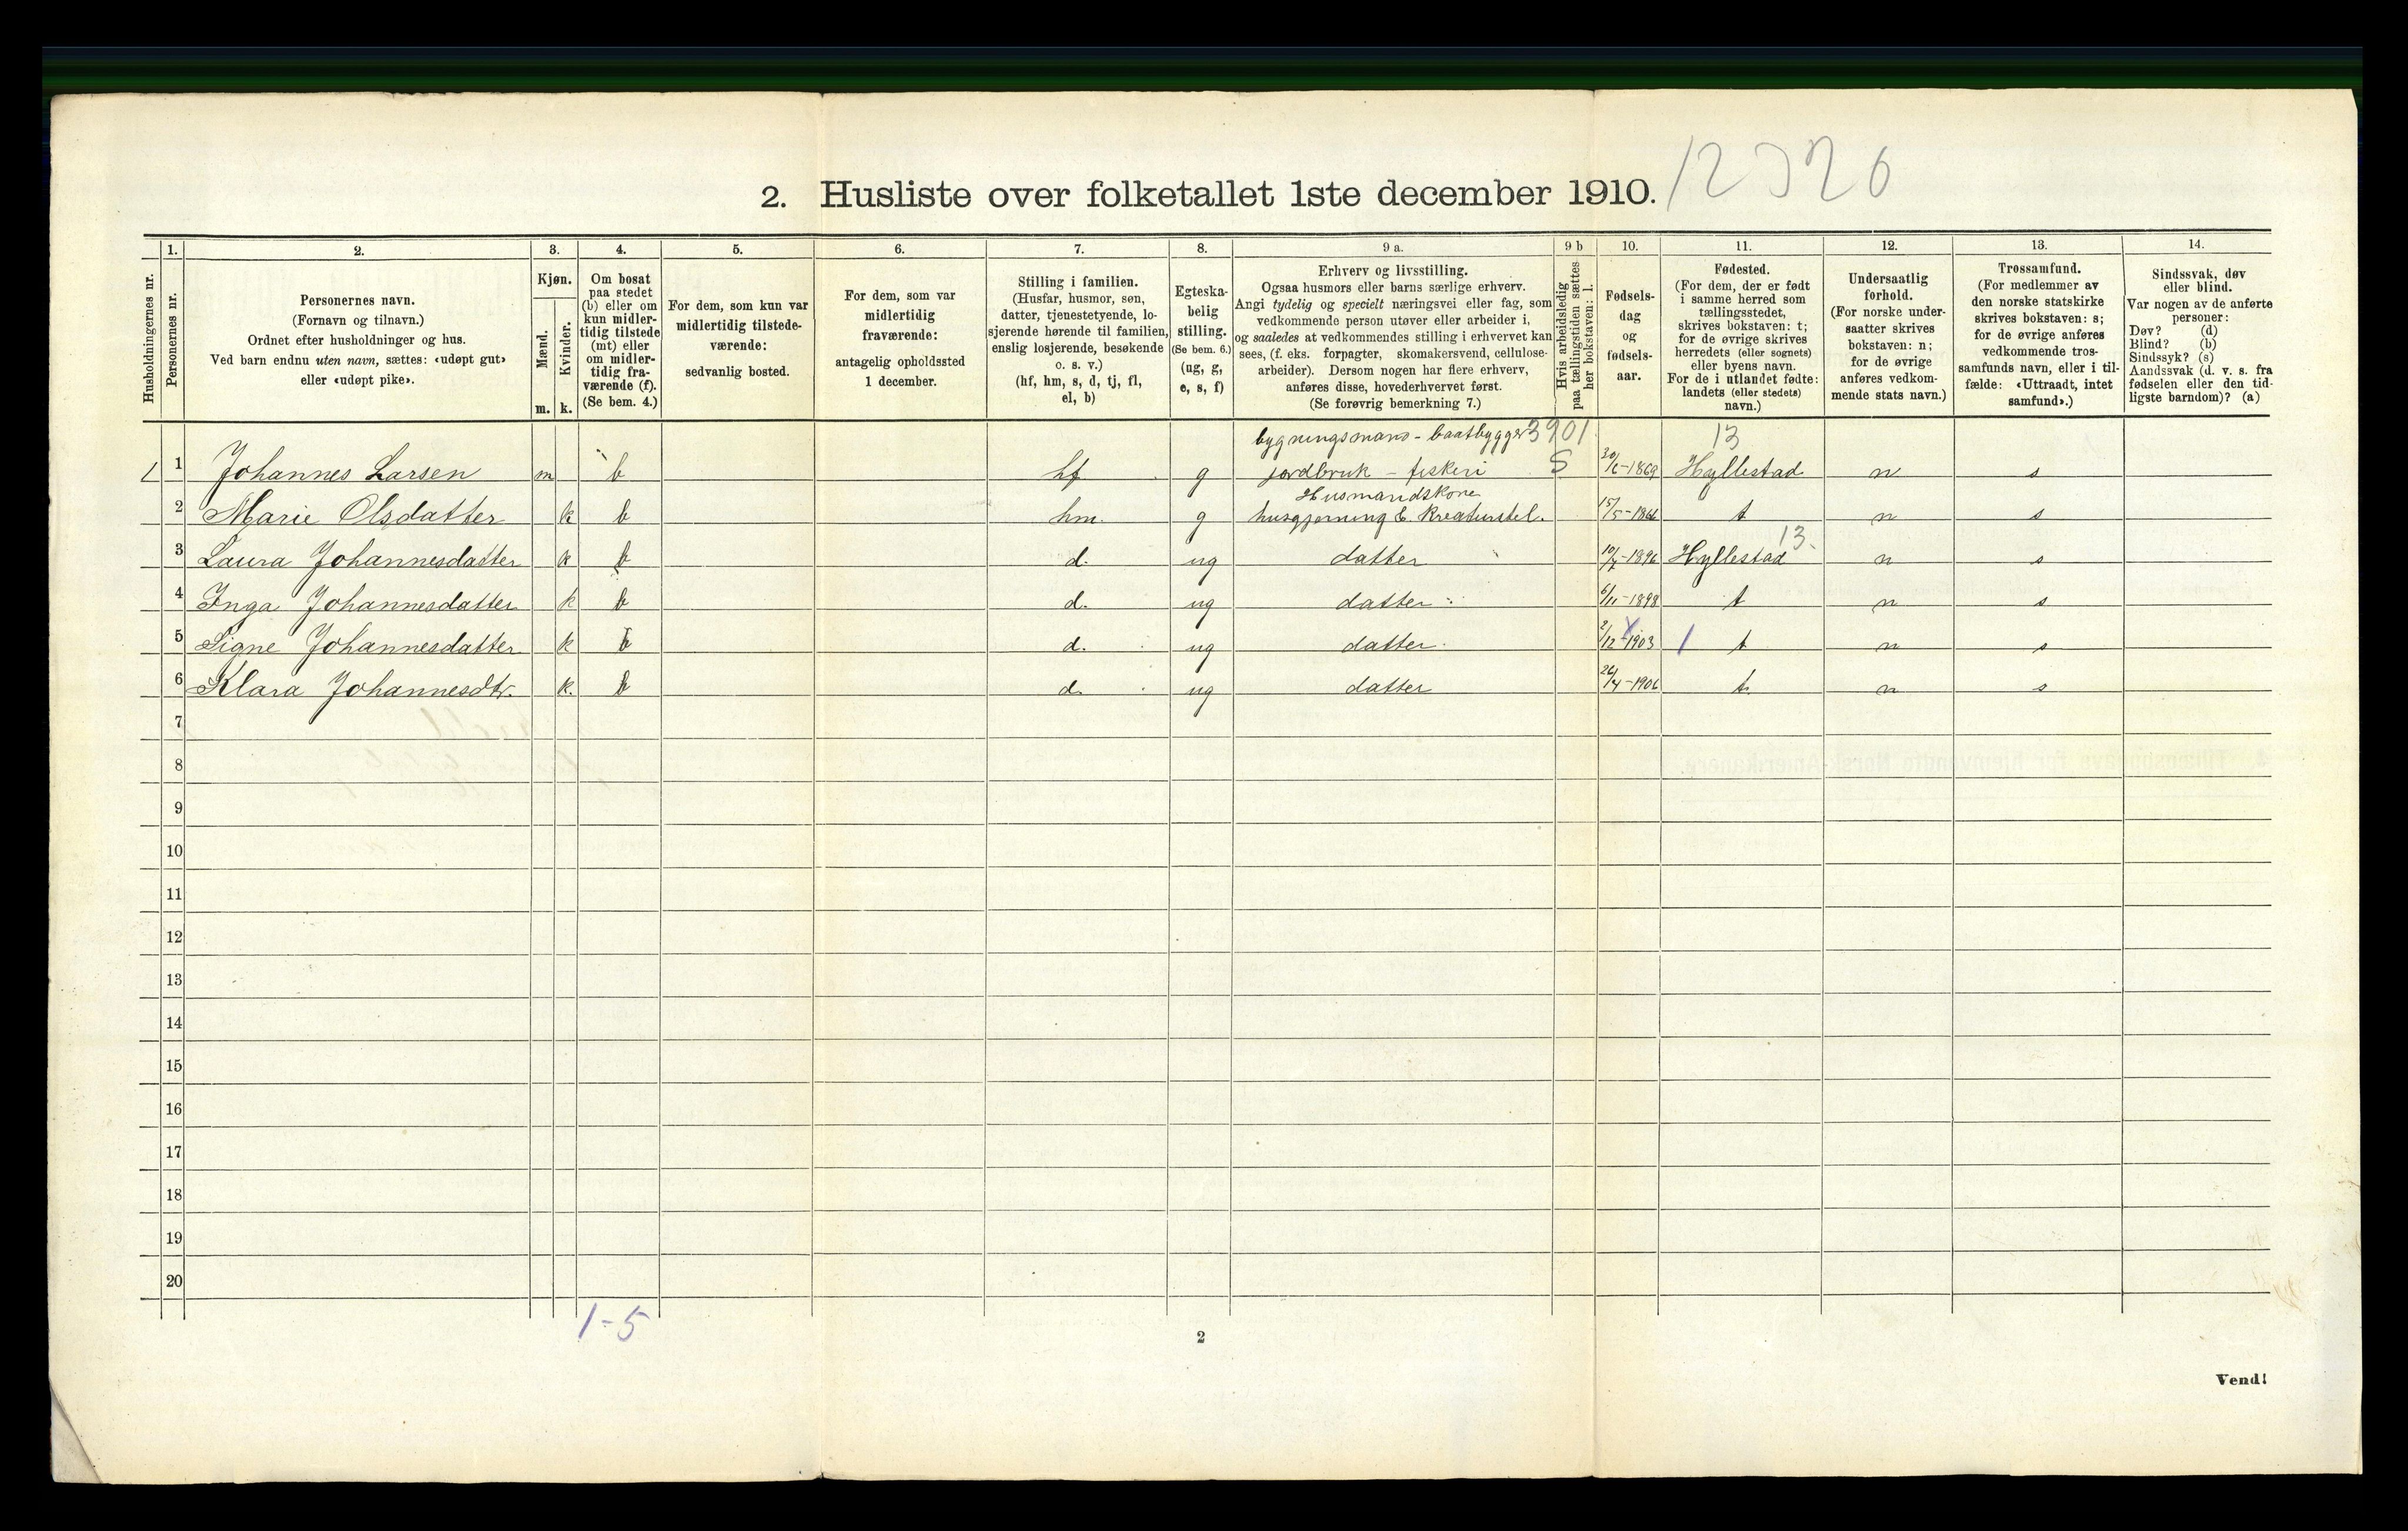 12320
2. Husliste over folketallet 1ste december 1910.
Husholdningernes nr.
1.
Personernes nr.
2.
Personernes navn.
(Fornavn og tilnavn.)
Ordnet efter husholdninger og hus.
Ved barn endnu uten navn, sættes: «udøpt gut»
eller «udøpt pike».
3.
Kjøn.
Mænd.
m.
Kvinder.
k.
4.
Om bosat
paa stedet
(b) eller om
kun midler-
tidig tilstede
(mt) eller
om midler-
tidig fra-
værende (f).
(Se bem. 4.)
5.
For dem, som kun var
midlertidig tilstede-
værende:
sedvanlig bosted.
6.
For dem, som var
midlertidig
fraværende:
antagelig opholdssted
1 december.
7.
Stilling i familien.
(Husfar, husmor, søn,
datter, tjenestetyende, lo-
sjerende hørende til familien,
enslig losjerende, besøkende
o. s. v.)
(hf, hm, s, d, tj, fl,
el, b)
8.
Egteska-
belig
stilling.
(Se bem. 6.)
(ug, g,
e, s, f)
9 a.
Erhverv og livsstilling.
Ogsaa husmors eller barns særlige erhverv.
Angi tydelig og specielt næringsvei eller fag, som
vedkommende person utøver eller arbeider i,
og saaledes at vedkommendes stilling i erhvervet kan
sees, (f. eks. forpagter, skomakersvend, cellulose-
arbeider). Dersom nogen har flere erhverv,
anføres disse, hovederhvervet først.
(Se forøvrig bemerkning 7.)
9 b
Hvis arbeidsledig
paa tællingstiden sættes
her bokstaven: l.
10.
Fødsels-
dag
og
fødsels-
aar.
11.
Fødested.
(For dem, der er født
i samme herred som
tællingsstedet,
skrives bokstaven: t;
for de øvrige skrives
herredets (eller sognets)
eller byens navn.
For de i utlandet fødte:
landets (eller stedets)
navn.)
12.
Undersaatlig
forhold.
(For norske under-
saatter skrives
bokstaven: n;
for de øvrige
anføres vedkom-
mende stats navn.)
13.
Trossamfund.
(For medlemmer av
den norske statskirke
skrives bokstaven: s;
for de øvrige anføres
vedkommende tros-
samfunds navn, eller i til-
fælde: «Uttraadt, intet
samfund».)
14.
Sindssvak, døv
eller blind.
Var nogen av de anførte
personer:
Døv? (d)
Blind? (b)
Sindssyk? (s)
Aandssvak (d. v. s. fra
fødselen eller den tid-
ligste barndom)? (a)
bygningsmann - baatbygger 3901 13
1 1 Johannes Larsen m b hf g jordbruk - fiskeri S 30/6-1869 Hyllestad n s
Husmandskone
2 Marie Olsdatter k b hm. g husgjerning & kreaturstel. 15/5-1866 t n s
13.
3 Laura Johannesdatter k b d. ug datter 10/7-1896 Hyllestad n s
4 Inga Johannesdatter k b d. ug datter 6/11-1898 t n s
5 Signe Johannesdatter k b d. ug datter 2/12-1903 t n s
6 Klara Johannesdtr. k. b d. ug datter 26/4-1906 t. n s
7
8
9
10
11
12
13
14
15
16
17
18
19
20
1-5
2
Vend!